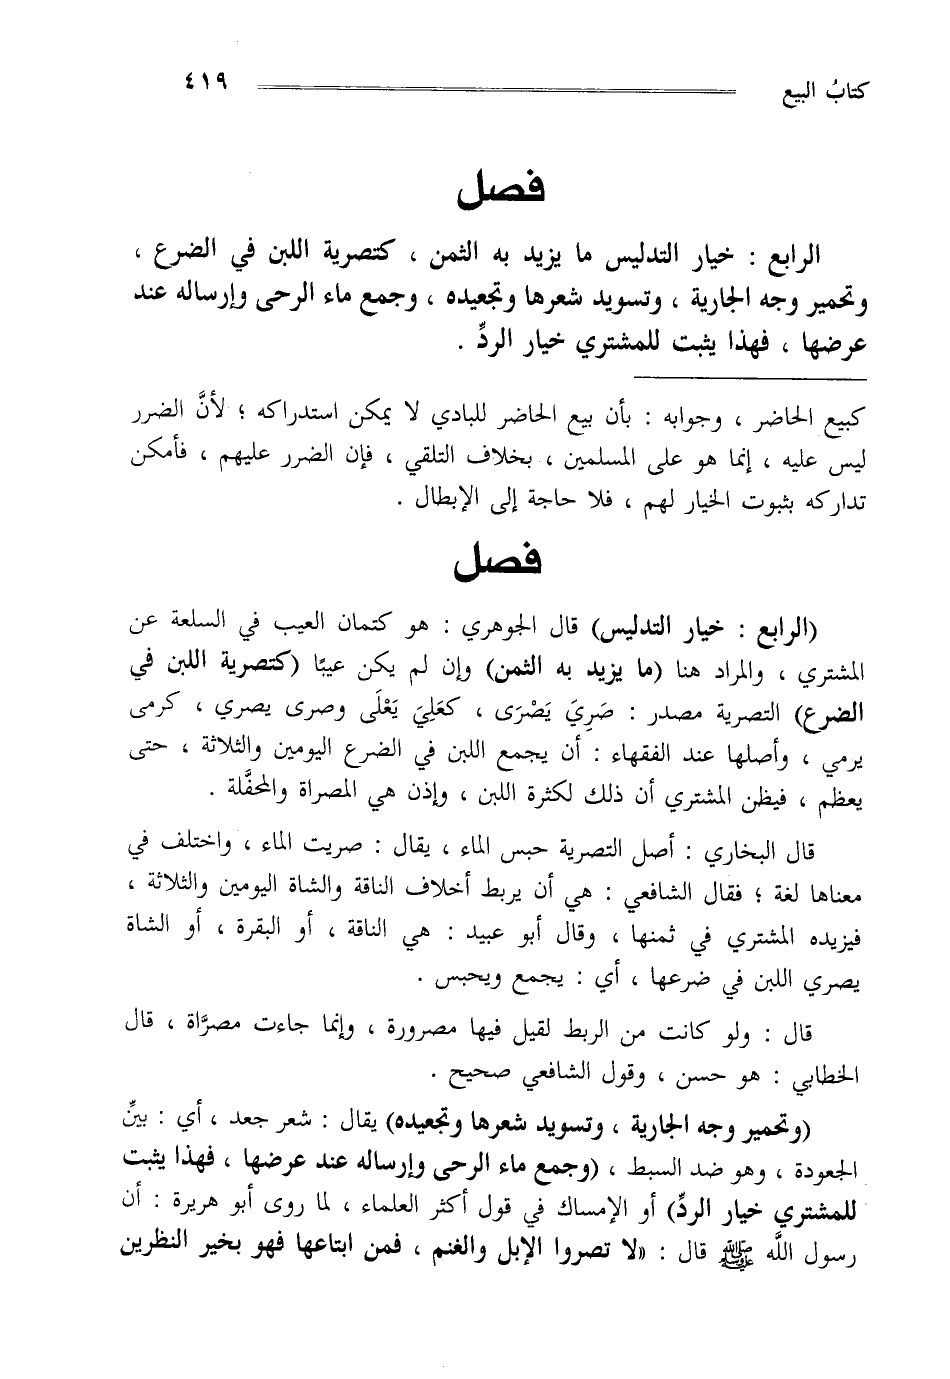 كتابُ البيع ٤١٩
فصل
الرابع : خيار التدليس ما يزيد به الثمن ، كتصرية اللبن في الضرع ،
وتحمير وجه الجارية ، وتسويد شعرها وتجعيده ، وجمع ماء الرحى وإرساله عند
عرضها ، فهذا يثبت للمشتري خيار الردِّ .
كبيع الحاضر ، وجوابه : بأن بيع الحاضر للبادي لا يمكن استدراكه ؛ لأنَّ الضرر
ليس عليه ، إنما هو على المسلمين ، بخلاف التلقي ، فإن الضرر عليهم ، فأمكن
تداركه بثبوت الخيار لهم ، فلا حاجة إلى الإبطال .
فصل
(الرابع : خيار التدليس) قال الجوهري : هو كتمان العيب في السلعة عن
المشتري ، والمراد هنا (ما يزيد به الثمن) وإن لم يكن عيبًا (كتصرية اللبن في
الضرع) التصرية مصدر : صَرِيَ يَصْرَى ، كعَلِيَ يَعْلَى وصرى يصري ، كرمى
يرمي ، وأصلها عند الفقهاء : أن يجمع اللبن في الضرع اليومين والثلاثة ، حتى
يعظم ، فيظن المشتري أن ذلك لكثرة اللبن ، وإذن هي المصراة والمحفَّلة .
قال البخاري : أصل التصرية حبس الماء ، يقال : صريت الماء ، واختلف في
معناها لغة ؛ فقال الشافعي : هي أن يربط أخلاف الناقة والشاة اليومين والثلاثة ،
فيزيده المشتري في ثمنها ، وقال أبو عبيد : هي الناقة ، أو البقرة ، أو الشاة
يصري اللبن في ضرعها ، أي : يجمع ويحبس .
قال : ولو كانت من الربط لقيل فيها مصرورة ، وإنما جاءت مصرَّاة ، قال
الخطابي : هو حسن ، وقول الشافعي صحيح .
(وتحمير وجه الجارية ، وتسويد شعرها وتجعيده) يقال : شعر جعد ، أي : بينِّ
الجعودة ، وهو ضد السبط ، (وجمع ماء الرحى وإرساله عند عرضها ، فهذا يثبت
للمشتري خيار الردِّ) أو الإمساك في قول أكثر العلماء ، لما روى أبو هريرة : أن
رسول اللَّه ﷺ قال : «لا تصروا الإبل والغنم ، فمن ابتاعها فهو بخير النظرين